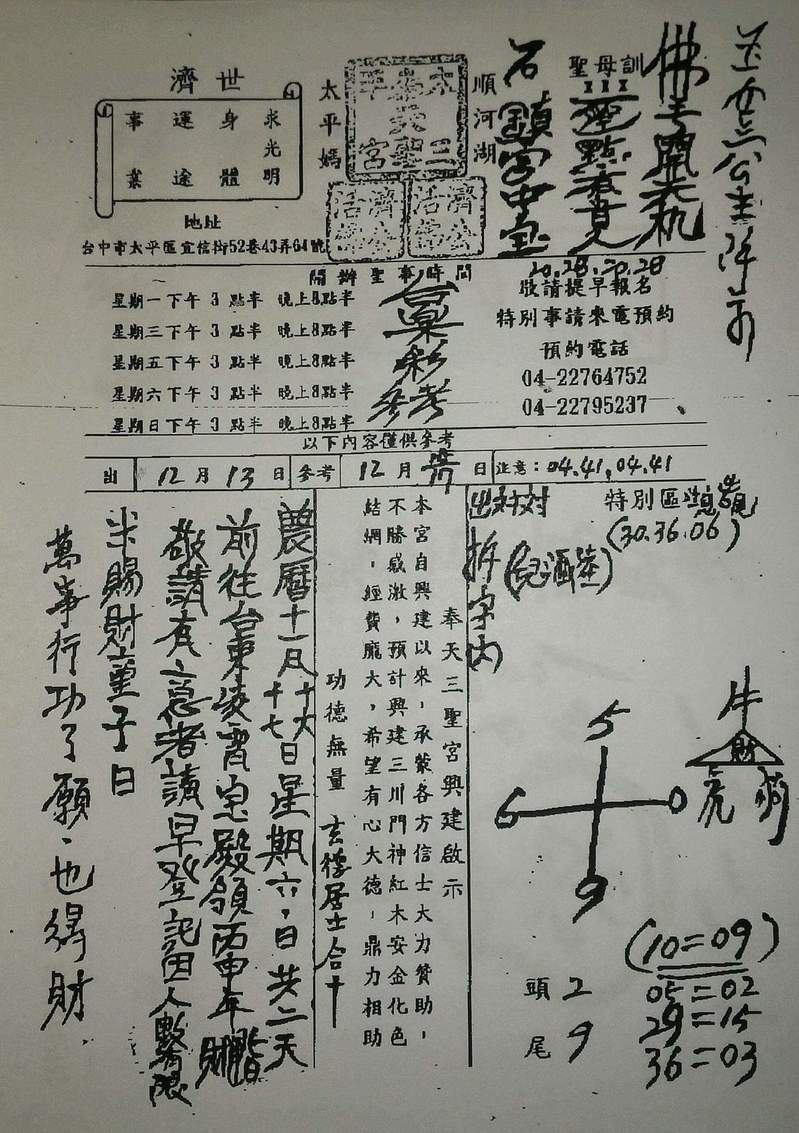 玉雲公主降示
佛手開天机
聖母訓
石
鎮宮中宝
順河湖
木三
奉天聖
宮
太平媽
濟公
活佛
濟公
活佛
濟世
求光明
身體
運途
事業
地址
台中市太平區宜信街52巷43弄64號
開辦聖事時間
星期一下午 3 點半 晚上8點半
星期三下午 3 點半 晚上8點半
星期五下午 3 點半 晚上8點半
星期六下午 3 點半 晚上8點半
星期日下午 3 點半 晚上8點半
台彩
參考
20.28.20.28
敬請提早報名
特別事請來電預約
預約電話
04-22764752
04-22795237
以下內容僅供參考
出 12 月 13 日 參考 12 月 日 注意：04.41,04.41
特別區
(30.36.06)
出对对
拆字內
牛
財
虎
5
6 0
9
頭 2
尾 9
(10=09)
05=02
29=15
36=03
奉天三聖宮興建啟示
本宮自興建以來，承蒙各方信士大力贊助，
不勝感激，預計興建三川門神紅木安金化色
結網，經費龐大，希望有心大德，鼎力相助
功德無量 玄德居士合十
農曆十一月十六十七日星期六、日共二天
前往台東凌霄宝殿領丙申年財
敬請有意者請早登記因人數有限
米賜財童子日
萬事行功了願、也得財